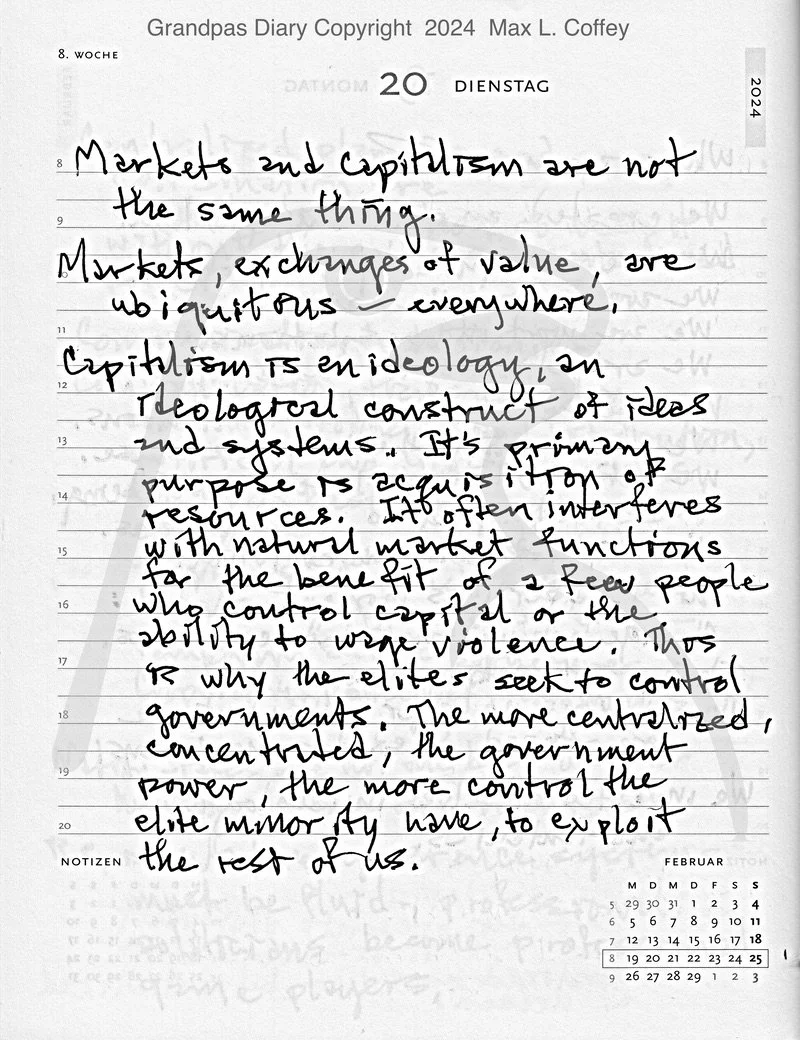 Grandpas Diary Copyright 2024 Max L. Coffey
8. WOCHE
20 DIENSTAG
2024
8 Markets and Capitalism are not
the same thing.
9
Markets, exchanges of value, are
10
ubiquitous – everywhere.
11
Capitalism is en ideology, an
12
ideological construct of ideas
13 and systems. It's primary
purpose is acquisition of
14
resources. It often interferes
15 with natural market functions
for the benefit of a few people
16 who control capital or the
ability to wage violence. This
17
is why the elites seek to control
18 governments. The more centralized,
concentrated, the government
19
power, the more control the
20 elite minority have, to exploit
NOTIZEN the rest of us.
FEBRUAR
M D M D F S S
5 29 30 31 1 2 3 4
6 5 6 7 8 9 10 11
7 12 13 14 15 16 17 18
8 19 20 21 22 23 24 25
9 26 27 28 29 1 2 3